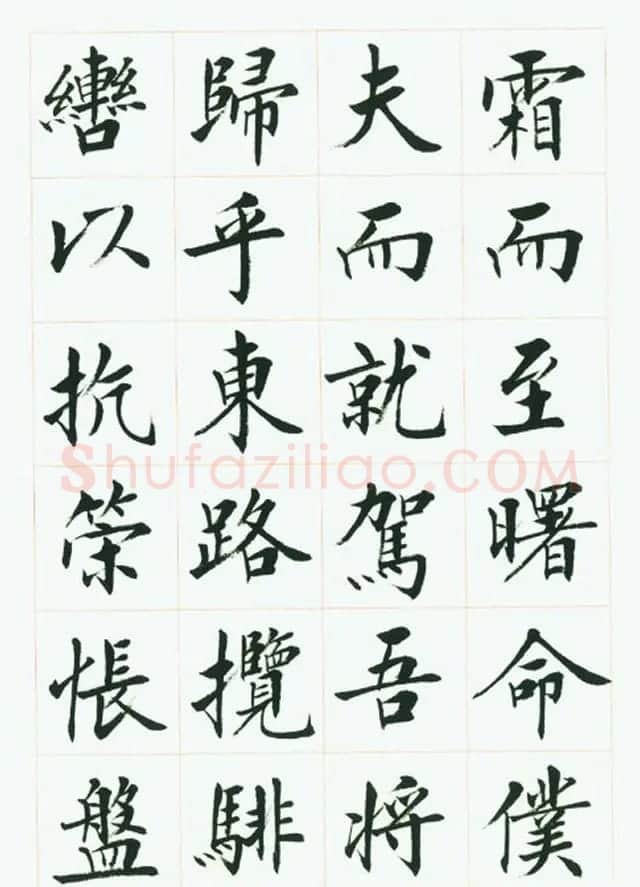 霜而至曙命僕
夫而就駕吾将
歸乎東路攬騑
轡以抗策悵盤
Shufaziliao.COM